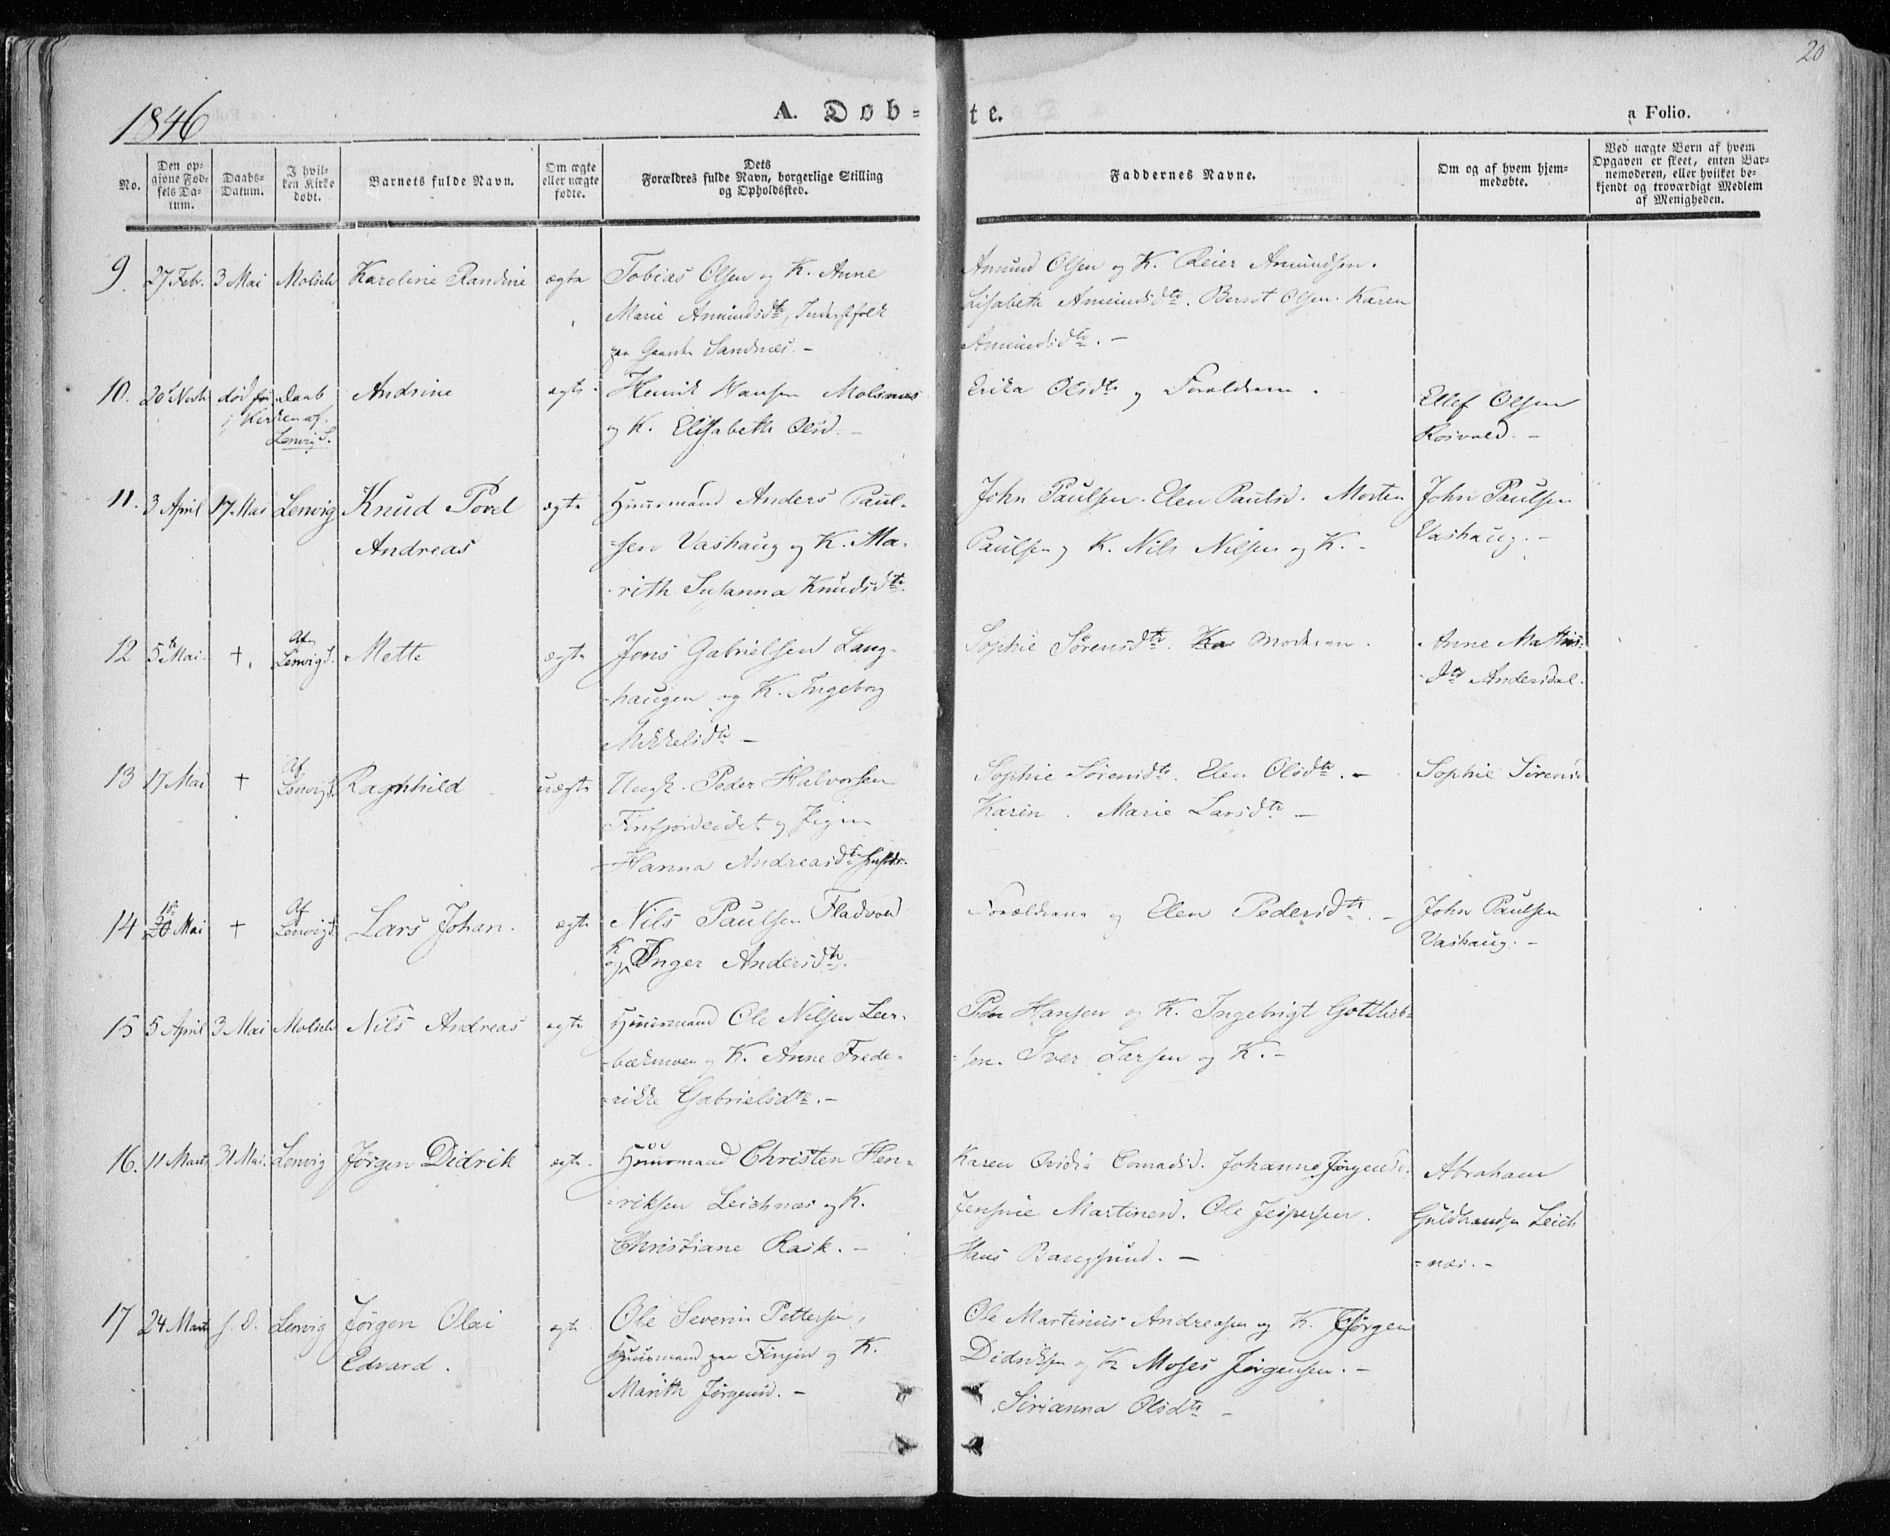 20
1846
A. Døb-
te.
a Folio.
No.
Den op-
givne Fød-
sels Da-
tum.
Daabs-
Datum.
I hvil-
ken Kirke
døbt.
Barnets fulde Navn.
Om ægte
eller uægte
fødte.
Dets
Forældres fulde Navn, borgerlige Stilling
og Opholdssted.
Faddernes Navne.
Om og af hvem hjem-
medøbte.
Ved uægte Børn af hvem
Opgaven er skeet, enten Bar-
nemoderen, eller hvilket be-
kjendt og troværdigt Medlem
af Menigheden.
9. 27 Febr. 3 Mai Karoline Randine ægte
Tobias Olsen og K. Anne
Marie Amundsdtr, Inderstfolk
paa Sandnæs. -
Amund Olsen og K. Reier Amundsen.
Lisabeth Amundsdtr. Bernt Olsen. Karen
Amundsdtr. -
10. død før Daab
i Kirken af
Lenvig S.
Andrine ægte
Henrik Hansen Molsnæs
og K. Elisabeth Olsd. -
Erika Olsdtr og Forældrene.
Ellef Olsen
Rosvold. -
11. 3 April 17 Mai Lenvig Knud Povel
Andreas
ægte
Huusmand Anders Paul-
sen Vashaug og K. Ma-
rith Susanna Knudsdtr.
John Paulsen. Elen Paulsd. Morten
Paulsen og K. Nils Nilsen og K. -
John Paulsen
Vashaug. -
12 5te Mai. +. Af
Lenvig S.
Mette ægte
Jens Gabrielsen Lang-
haugen og K. Ingeborg
Mikkelsdtr -
Sophie Sørensdtr. Moderen.
Anne Mathis-
dtr Andersdal.
13 17 Mai + Af
Lenvig S.
Ragnhild uægte
Ungk. Peder Halvorsen
Finfjordeidet og Pigen
Hanna Andreasdtr
Sophie Sørensdtr. Elen Olsdtr. -
Karen. Marie Larsdtr -
Sophie Sørensd
14 20 Mai + Af
Lenvig S.
Lars Johan. ægte
Nils Paulsen Fladvold
og K Inger Andersdtr.
Forældrene og Elen Pedersdtr. -
John Paulsen
Vashaug. -
15 5 April 3 Mai Nils Andreas ægte
Huusmand Ole Nilsen Leer-
bækmoen og K. Anne Frede-
rikke Gabrielsdtr. -
Peder Hansen og K. Ingebrigt Gottlieb-
sen. Iver Larsen og K. -
16. 11 Marts 31 Mai. Lenvig Jørgen Didrik ægte.
Huusmand Christen Hen-
riksen Leichnæs og K.
Christiane Rask. -
Karen Ovidia Conradsd. Johanna Jørgensd.
Jensine Martinusd. Ole Jespersen.
Hans Bangsund. -
Abraham
Guldbrandsen Leich
-næs. -
17 24 Marts s. D. Lenvig Jørgen Olai
Edvard.
ægte
Ole Severin Pettersen,
Huusmand paa Finjord og K.
Marith Jørgensd. -
Ole Martinus Andreasen og K. Jørgen
Didriksen og K Moses Jørgensen. -
Sirianna Olsdtr -